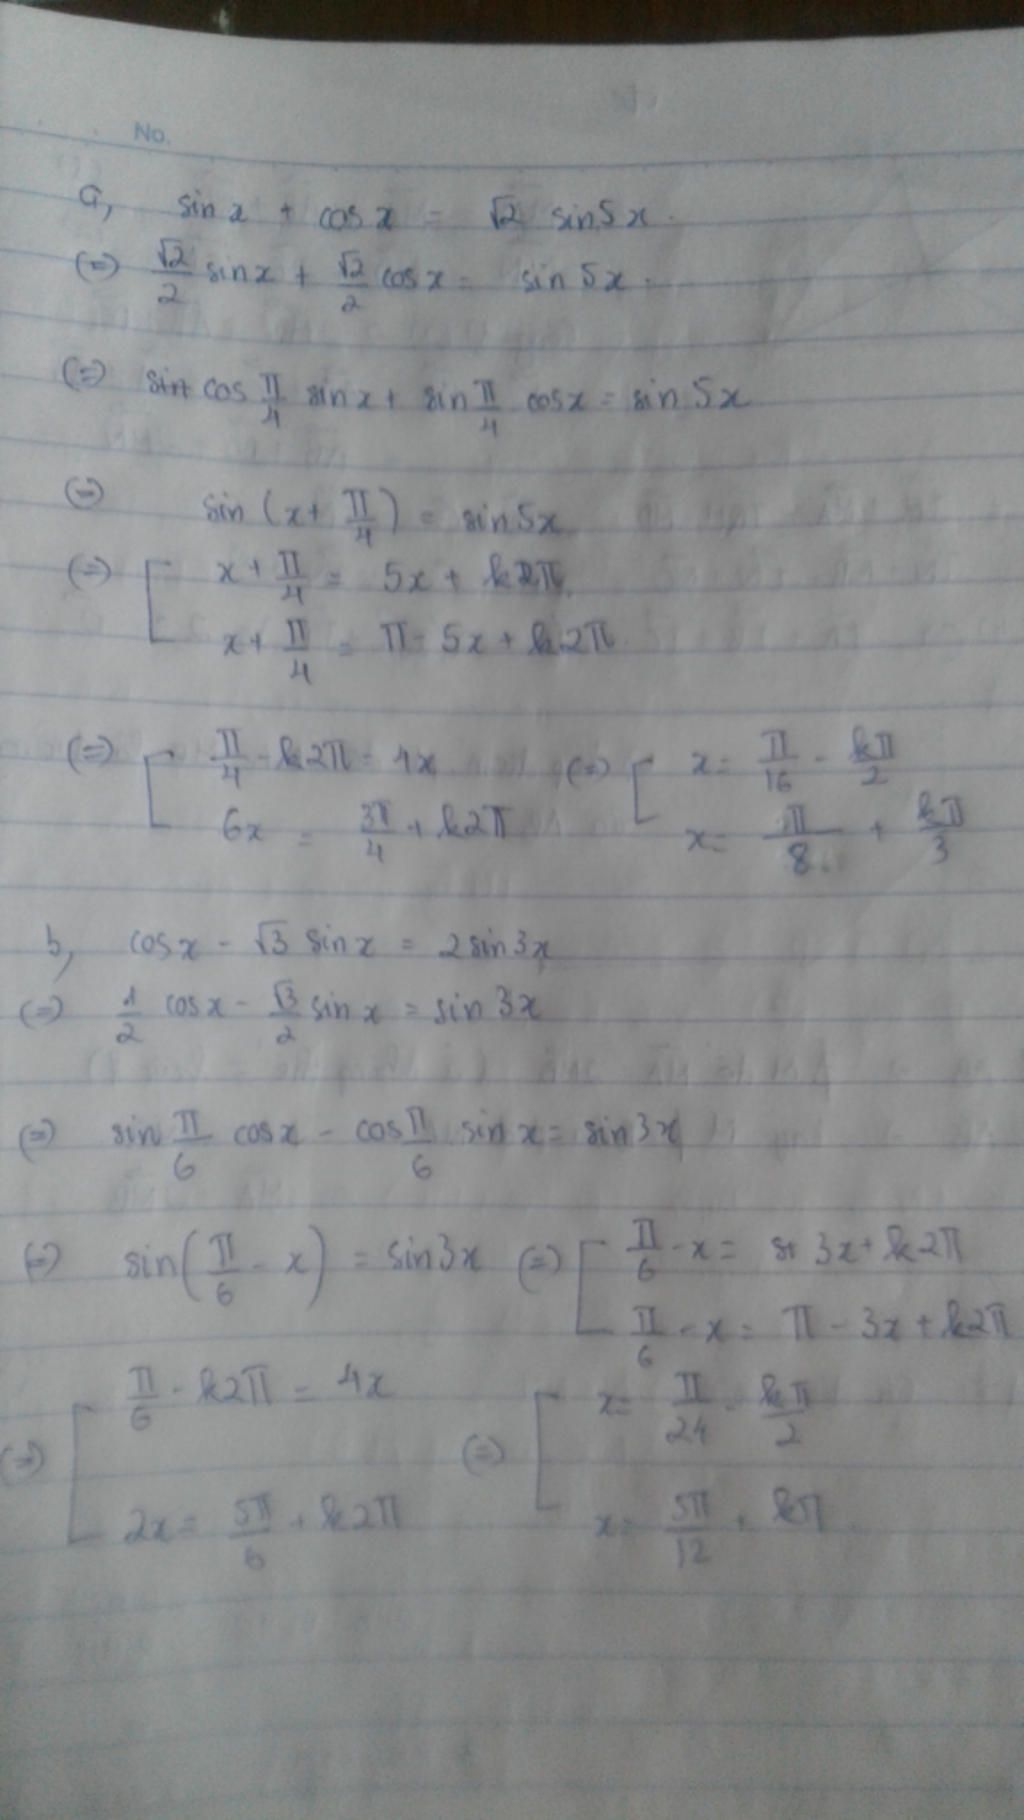 No.
a, sin x + cos x = √2 sin 5x.
(=) √2/2 sin x + √2/2 cos x = sin 5x.
(=) cos π/4 sin x + sin π/4 cos x = sin 5x
(=) sin (x + π/4) = sin 5x
(=) [ x + π/4 = 5x + k2π.
x + π/4 = π - 5x + k2π.
(=) [ π/4 - k2π = 4x (=) [ x = π/16 - kπ/2
6x = 3π/4 + k2π x = π/8 + kπ/3
b, cos x - √3 sin x = 2 sin 3x
(=) 1/2 cos x - √3/2 sin x = sin 3x
(=) sin π/6 cos x - cos π/6 sin x = sin 3x
(=) sin(π/6 - x) = sin 3x (=) [ π/6 - x = 3x + k2π
π/6 - x = π - 3x + k2π
(=) [ π/6 - k2π = 4x (=) [ x = π/24 - kπ/2
2x = 5π/6 + k2π x = 5π/12 + kπ.